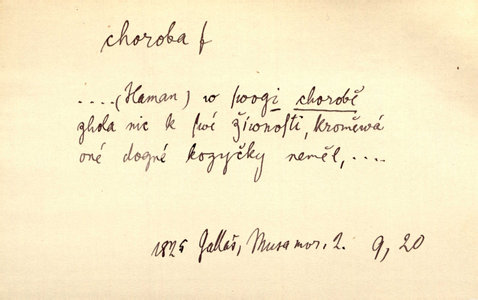 choroba f
....(Haman) w swogi chorobě
zhola nic k swé žiwnosti, kroměwá
oné dogné kozyčky neměl,....
1825 Gallaš, Musa mor. 2. 9, 20